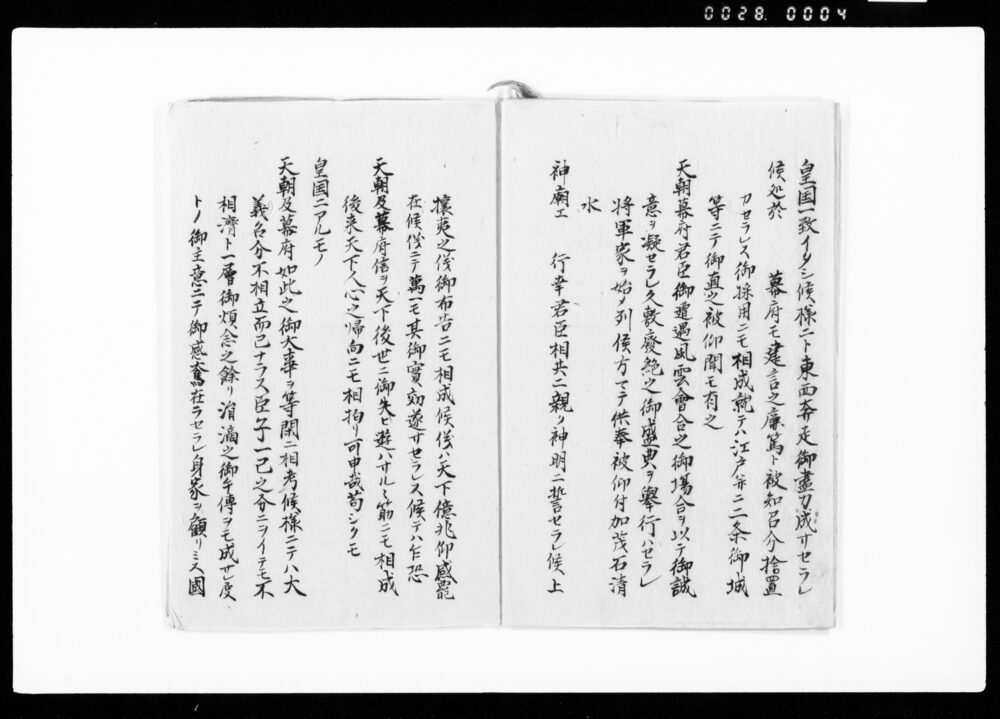 0028. 0004
皇国一致イタシ候様ニト東西奔走御盡力成サセラレ
候処於 幕府モ建言之廉篤ト被知召分捨置
カセラレス御採用ニモ相成就テハ江戸并ニ二条御城
等ニテ御直之被仰聞モ有之
天朝幕府君臣御遭遇風雲會合之御場合ヲ以テ御誠
意ヲ凝セラレ久敷廢絶之御盛典ヲ舉行ハセラレ
将軍家ヲ始メ列侯方マテ供奉被仰付加茂石清
水
神廟エ 行幸君臣相共ニ親ク神明ニ誓セラレ候上
攘夷之儀御布告ニモ相成候儀ハ天下億兆仰感罷
在候儀ニテ萬一モ其御實効遂サセラレス候テハ乍恐
天朝及幕府信ヲ天下後世ニ御失ヒ遊ハサルヽ筋ニモ相成
後来天下人心之帰向ニモ相拘リ可申哉苟シクモ
皇国ニアルモノ
天朝及幕府如此之御大事ヲ等閑ニ相考候様ニテハ大
義名分不相立而已ナラス臣子一己之分ニヲイテモ不
相濟ト一層御煩念之餘リ涓滴之御手傳ヲモ成サレ度
トノ御主意ニテ御感奮在ラセラレ身家ヲ顧リミス國